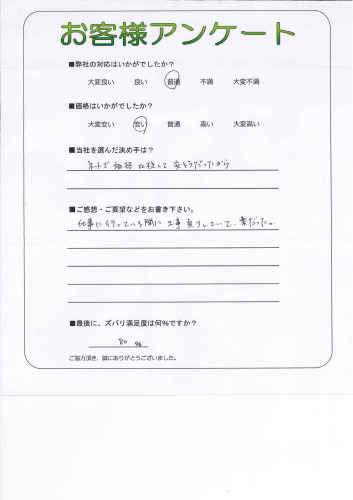 お客様アンケート
■弊社の対応はいかがでしたか？
大変良い 良い 普通 不満 大変不満
■価格はいかがでしたか？
大変安い 安い 普通 高い 大変高い
■当社を選んだ決め手は？
ネットで価格比較して安そうだったから
■ご感想・ご要望などをお書き下さい。
仕事に行っている間に工事完了していて、楽だった。
■最後に、ズバリ満足度は何％ですか？
80 %
ご協力頂き、誠にありがとうございました。